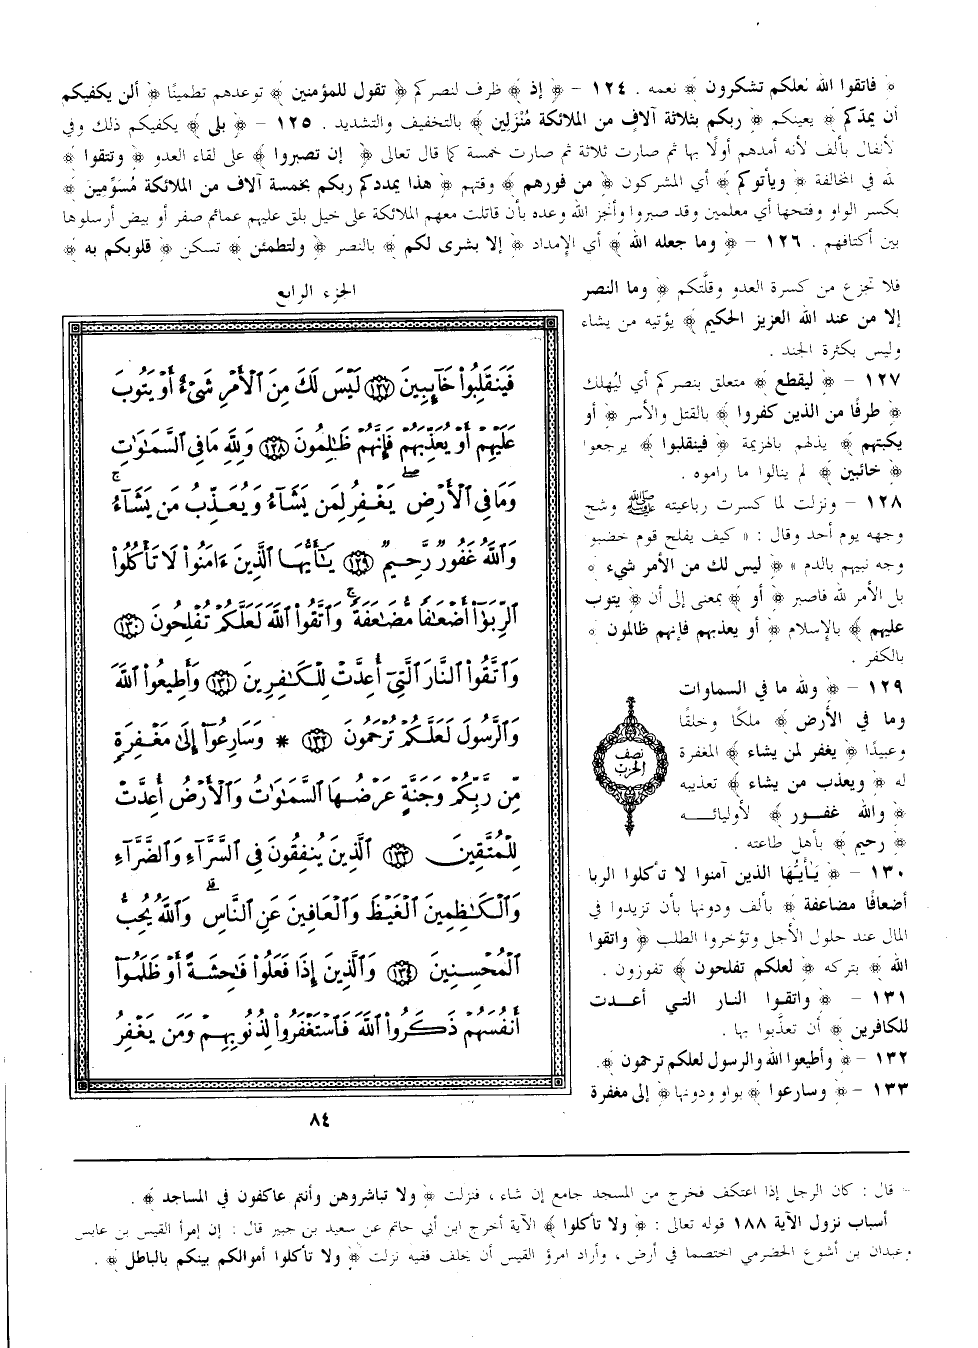 ﴿ فاتقوا الله لعلكم تشكرون ﴾ نعمه . ١٢٤ - ﴿ إذ ﴾ ظرف لنصركم ﴿ تقول للمؤمنين ﴾ توعدهم تطمينًا ﴿ ألن يكفيكم
أن يمدكم ﴾ يعينكم ﴿ ربكم بثلاثة آلاف من الملائكة مُنْزَلِين ﴾ بالتخفيف والتشديد . ١٢٥ - ﴿ بلى ﴾ يكفيكم ذلك وفي
لأنفال بألف لأنه أمدهم أولًا بها ثم صارت ثلاثة ثم صارت خمسة كما قال تعالى ﴿ إن تصبروا ﴾ على لقاء العدو ﴿ وتتقوا ﴾
لله في المخالفة ﴿ ويأتوكم ﴾ أي المشركون ﴿ من فورهم ﴾ وقتهم ﴿ هذا يمددكم ربكم بخمسة آلاف من الملائكة مُسَوِّمِين ﴾
بكسر الواو وفتحها أي معلمين وقد صبروا وأنجز الله وعده بأن قاتلت معهم الملائكة على خيل بلق عليهم عمائم صفر أو بيض أرسلوها
بين أكتافهم . ١٢٦ - ﴿ وما جعله الله ﴾ أي الإمداد ﴿ إلا بشرى لكم ﴾ بالنصر ﴿ ولتطمئن ﴾ تسكن ﴿ قلوبكم به ﴾
فلا تجزع من كسرة العدو وقلَّتكم ﴿ وما النصر
إلا من عند الله العزيز الحكيم ﴾ يؤتيه من يشاء
وليس بكثرة الجند .
١٢٧ - ﴿ ليقطع ﴾ متعلق بنصركم أي ليُهلك
﴿ طرفًا من الذين كفروا ﴾ بالقتل والأسر ﴿ أو
يكبتهم ﴾ يذلهم بالهزيمة ﴿ فينقلبوا ﴾ يرجعوا
﴿ خائبين ﴾ لم ينالوا ما راموه .
١٢٨ - ونزلت لما كسرت رباعيته ﷺ وشج
وجهه يوم أحد وقال : « كيف يفلح قوم خضبو
وجه نبيهم بالدم » ﴿ ليس لك من الأمر شيء ﴾
بل الأمر لله فاصبر ﴿ أو ﴾ بمعنى إلى أن ﴿ يتوب
عليهم ﴾ بالإسلام ﴿ أو يعذبهم فإنهم ظالمون ﴾
بالكفر .
١٢٩ - ﴿ ولله ما في السماوات
وما في الأرض ﴾ ملكًا وخلقًا
وعبيدًا ﴿ يغفر لمن يشاء ﴾ المغفرة
له ﴿ ويعذب من يشاء ﴾ تعذيبه
﴿ والله غفـــور ﴾ لأوليائـــه
﴿ رحيم ﴾ بأهل طاعته .
١٣٠ - ﴿ يَـٰأَيُّهَا الذين آمنوا لا تأكلوا الربا
أضعافًا مضاعفة ﴾ بألف ودونها بأن تزيدوا في
المال عند حلول الأجل وتؤخروا الطلب ﴿ واتقوا
الله ﴾ بتركه ﴿ لعلكم تفلحون ﴾ تفوزون .
١٣١ - ﴿ واتقـوا النـار التـي أعـــدت
للكافرين ﴾ أن تعذَّبوا بها .
١٣٢ - ﴿ وأطيعوا الله والرسول لعلكم ترحمون ﴾.
١٣٣ - ﴿ وسارعوا ﴾ بواو ودونها ﴿ إلى مغفرة
نصف
الحزب
الجزء الرابع
فَيَنقَلِبُوا۟ خَآئِبِينَ ١٢٧ لَيْسَ لَكَ مِنَ ٱلْأَمْرِ شَىْءٌ أَوْ يَتُوبَ
عَلَيْهِمْ أَوْ يُعَذِّبَهُمْ فَإِنَّهُمْ ظَـٰلِمُونَ ١٢٨ وَلِلَّهِ مَا فِى ٱلسَّمَـٰوَٰتِ
وَمَا فِى ٱلْأَرْضِ ۖ يَغْفِرُ لِمَن يَشَآءُ وَيُعَذِّبُ مَن يَشَآءُ ۚ
وَٱللَّهُ غَفُورٌ رَّحِيمٌ ١٢٩ يَـٰٓأَيُّهَا ٱلَّذِينَ ءَامَنُوا۟ لَا تَأْكُلُوا۟
ٱلرِّبَوٰٓا۟ أَضْعَـٰفًا مُّضَـٰعَفَةً ۖ وَٱتَّقُوا۟ ٱللَّهَ لَعَلَّكُمْ تُفْلِحُونَ ١٣٠
وَٱتَّقُوا۟ ٱلنَّارَ ٱلَّتِىٓ أُعِدَّتْ لِلْكَـٰفِرِينَ ١٣١ وَأَطِيعُوا۟ ٱللَّهَ
وَٱلرَّسُولَ لَعَلَّكُمْ تُرْحَمُونَ ١٣٢ * وَسَارِعُوٓا۟ إِلَىٰ مَغْفِرَةٍ
مِّن رَّبِّكُمْ وَجَنَّةٍ عَرْضُهَا ٱلسَّمَـٰوَٰتُ وَٱلْأَرْضُ أُعِدَّتْ
لِلْمُتَّقِينَ ١٣٣ ٱلَّذِينَ يُنفِقُونَ فِى ٱلسَّرَّآءِ وَٱلضَّرَّآءِ
وَٱلْكَـٰظِمِينَ ٱلْغَيْظَ وَٱلْعَافِينَ عَنِ ٱلنَّاسِ ۗ وَٱللَّهُ يُحِبُّ
ٱلْمُحْسِنِينَ ١٣٤ وَٱلَّذِينَ إِذَا فَعَلُوا۟ فَـٰحِشَةً أَوْ ظَلَمُوٓا۟
أَنفُسَهُمْ ذَكَرُوا۟ ٱللَّهَ فَٱسْتَغْفَرُوا۟ لِذُنُوبِهِمْ وَمَن يَغْفِرُ
٨٤
- قال : كان الرجل إذا اعتكف فخرج من المسجد جامع إن شاء ، فنزلت ﴿ ولا تباشروهن وأنتم عاكفون في المساجد ﴾ .
أسباب نزول الآية ١٨٨ قوله تعالى : ﴿ ولا تأكلوا ﴾ الآية أخرج ابن أبي حاتم عن سعيد بن جبير قال : إن إمرأ القيس بن عابس
وعبدان بن أشوع الحضرمي اختصما في أرض ، وأراد امرؤ القيس أن يحلف ففيه نزلت ﴿ ولا تأكلوا أموالكم بينكم بالباطل ﴾ .